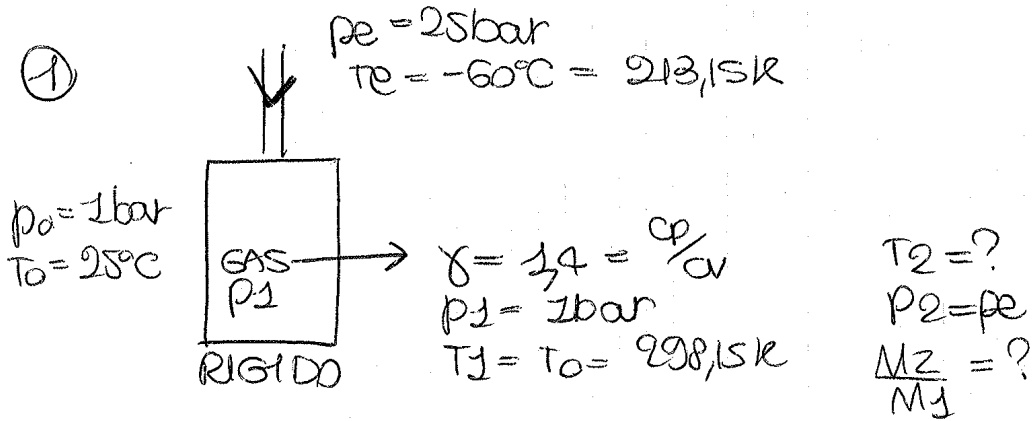 1
pe = 25bar
Te = -60°C = 213,15K
po = 1bar
To = 25°C
GAS
P1
RIGIDO
γ = 1,4 = cp/cv
p1 = 1bar
T1 = To = 298,15K
T2 = ?
P2 = pe
M2/M1 = ?